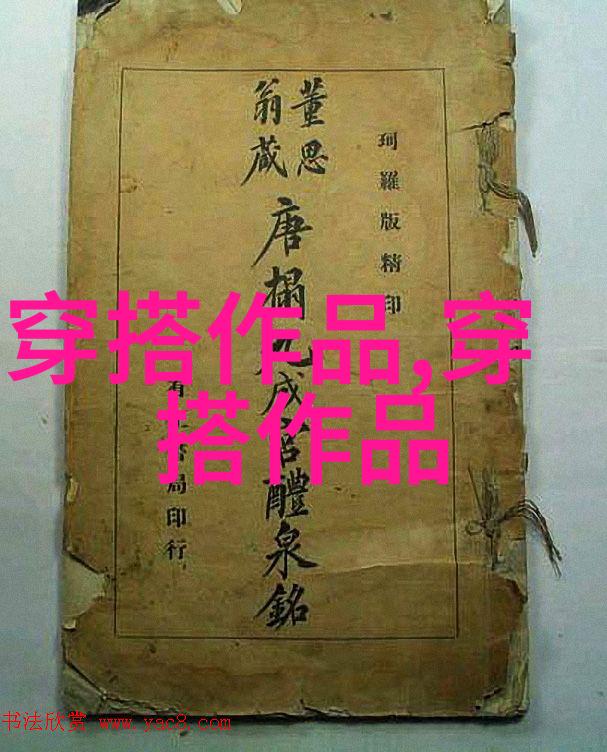 珂羅版精印
董思
翁藏
唐搨九成宮醴泉銘
有 書局印行
穿搭作品,穿
搭作品
书法欣赏 www.yac8.com